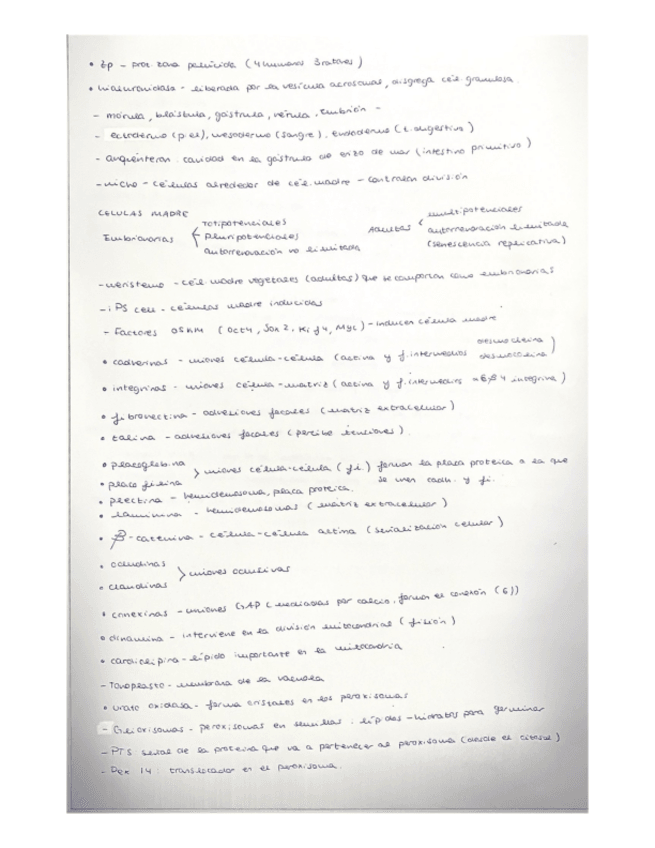 • Zp - prot. zona pelúcida (4 humanos 3 ratones)
• hialuronidasa - liberada por la vesícula acrosomas, disgrega cél granulosa
- mórula, blástula, gástrula, nérula, embrión -
- ectodermo (piel), mesodermo (sangre), endodermo (t. digestivo)
- arquenteron: cavidad en la gástrula de erizo de mar (intestino primitivo)
- nicho - células alrededor de cél. madre - controlan división
CELULAS MADRE
Embrionarias < Totipotenciales
Pluripotenciales
autorrenovación no limitada
Adultas < multipotenciales
autorrenovación limitada
(senescencia replicativa)
- meristemo - cél. madre vegetales (adultas) que se comportan como embrionarias
- iPS cell - células madre inducidas
- Factores OSKM (Oct4, Sox2, Klf4, Myc) - inducen célula madre
• cadherinas - uniones célula-célula (actina y f. intermedios desmocolina)
• integrinas - uniones célula-matriz (actina y f. intermedios = 6β4 integrina)
• fibronectina - adhesiones focales (matriz extracelular)
• talina - adhesiones focales (percibe tensiones)
• placoglobina
• placofilina > uniones célula-célula (f.i.) forman la placa proteica a la que
se unen cadh. y f.i.
• plectina - hemidesmosoma, placa proteica.
• laminina - hemidesmosomas (matriz extracelular)
• β-catenina - célula-célula actina (señalización celular)
• ocludinas
• claudinas > uniones oclusivas
• conexinas - uniones GAP (mediadas por calcio, forman el conexón (6))
• dinamina - interviene en la división mitocondrial (fisión)
• cardiolipina - lípido importante en la mitocondria
- Tonoplasto - membrana de la vacuola
• urato oxidasa - forma cristales en los peroxisomas
- Glioxisomas - peroxisomas en semillas: lípidos - hidratos para germinar
- PTS señal de la proteína que va a pertenecer al peroxisoma (desde el citosol)
- Pex 14: translocador en el peroxisoma.